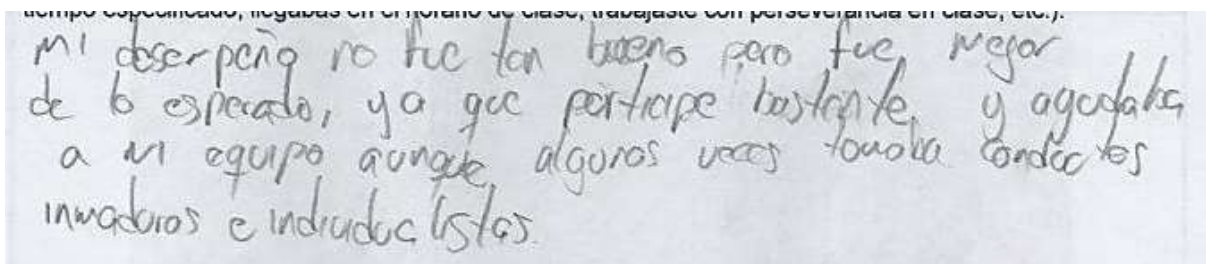 tiempo especificado, llegabas en el horario de clase, trabajaste con perseverancia en clase, etc.).
Mi deserpeño no fue tan bueno pero fue mejor
de lo esperado, ya que participe bastante, y agudaba
a mi equipo aunque, algunas veces tomaba conductas
inmaduras e individualistas.